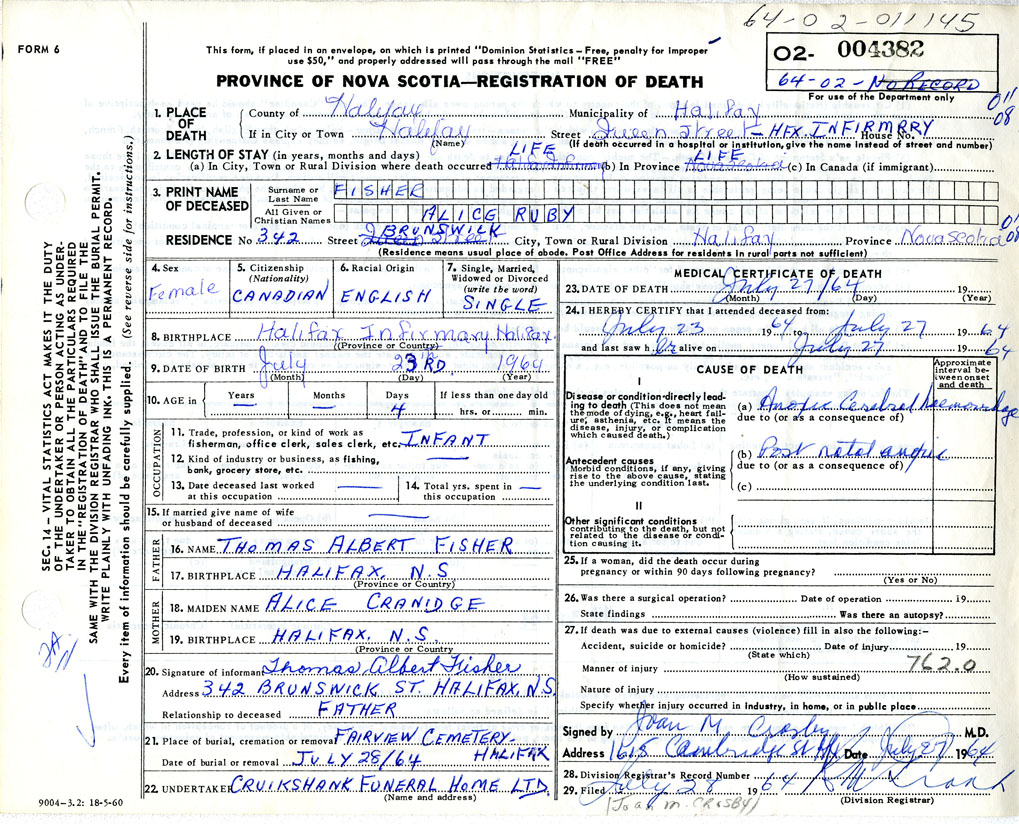 64-02-011145
FORM 6
This form, if placed in an envelope, on which is printed "Dominion Statistics — Free, penalty for improper
use $50," and properly addressed will pass through the mail "FREE"
02- 004382
64-02- No RECORD
For use of the Department only
011
08
PROVINCE OF NOVA SCOTIA—REGISTRATION OF DEATH
1. PLACE OF DEATH
County of Halifax Municipality of Halifax
If in City or Town Halifax Street Queen Street - HFX INFIRMARY House No.
(Name) (If death occurred in a hospital or institution, give the name instead of street and number)
2. LENGTH OF STAY (in years, months and days)
(a) In City, Town or Rural Division where death occurred LIFE (b) In Province LIFE Nova Scotia (c) In Canada (if immigrant)
3. PRINT NAME OF DECEASED
Surname or Last Name FISHER
All Given or Christian Names ALICE RUBY
RESIDENCE No 342 Street BRUNSWICK Queen Street City, Town or Rural Division Halifax Province Nova Scotia
(Residence means usual place of abode. Post Office Address for residents in rural parts not sufficient)
08
4. Sex Female
5. Citizenship (Nationality) CANADIAN
6. Racial Origin ENGLISH
7. Single, Married, Widowed or Divorced (write the word) SINGLE
8. BIRTHPLACE Halifax Infirmary Halifax
(Province or Country)
9. DATE OF BIRTH July 23RD. 1964
(Month) (Day) (Year)
10. AGE in Years — Months — Days 4 If less than one day old hrs. or min.
OCCUPATION
11. Trade, profession, or kind of work as
fisherman, office clerk, sales clerk, etc. INFANT
12. Kind of industry or business, as fishing,
bank, grocery store, etc. —
13. Date deceased last worked
at this occupation —
14. Total yrs. spent in
this occupation —
15. If married give name of wife
or husband of deceased —
FATHER
16. NAME THOMAS ALBERT FISHER
17. BIRTHPLACE HALIFAX, N.S
(Province or Country)
MOTHER
18. MAIDEN NAME ALICE CRANIDGE
19. BIRTHPLACE HALIFAX, N.S.
(Province or Country
20. Signature of informant Thomas Albert Fisher
Address 342 BRUNSWICK ST. HALIFAX, N.S.
Relationship to deceased FATHER
21. Place of burial, cremation or removal FAIRVIEW CEMETERY- HALIFAX
Date of burial or removal JULY 28/64
22. UNDERTAKER CRUIKSHANK FUNERAL HOME LTD.
(Name and address)
MEDICAL CERTIFICATE OF DEATH
23. DATE OF DEATH July 27/64 19
(Month) (Day) (Year)
24. I HEREBY CERTIFY that I attended deceased from:
July 23 1964 to July 27 1964
and last saw her alive on July 27 1964
CAUSE OF DEATH
Approximate interval between onset and death
I
Disease or condition directly leading to death (This does not mean the mode of dying, e.g., heart failure, asthenia, etc. It means the disease, injury, or complication which caused death.)
(a) Anoxic Cerebral haemorrhage
due to (or as a consequence of)
Antecedent causes
Morbid conditions, if any, giving rise to the above cause, stating the underlying condition last.
(b) Post natal anoxia
due to (or as a consequence of)
(c)
II
Other significant conditions
contributing to the death, but not related to the disease or condition causing it.
25. If a woman, did the death occur during
pregnancy or within 90 days following pregnancy?
(Yes or No)
26. Was there a surgical operation? Date of operation 19
State findings Was there an autopsy?
27. If death was due to external causes (violence) fill in also the following:—
Accident, suicide or homicide? Date of injury 19
(State which)
Manner of injury 762.0
(How sustained)
Nature of injury
Specify whether injury occurred in industry, in home, or in public place
Signed by Joan M. Crosby M.D.
Address 1615 Cambridge St Hfx Date July 27 1964
28. Division Registrar's Record Number
29. Filed July 28 1964
(Division Registrar)
(Joan M. CROSBY)
SEC. 14 — VITAL STATISTICS ACT MAKES IT THE DUTY
OF THE UNDERTAKER OR PERSON ACTING AS UNDER-
TAKER TO OBTAIN ALL THE PARTICULARS REQUIRED
IN THE "REGISTRATION OF DEATH" AND TO FILE THE
SAME WITH THE DIVISION REGISTRAR WHO SHALL ISSUE THE BURIAL PERMIT.
WRITE PLAINLY WITH UNFADING INK. THIS IS A PERMANENT RECORD.
Every item of information should be carefully supplied. (See reverse side for instructions.)
9004-3.2: 18-5-60